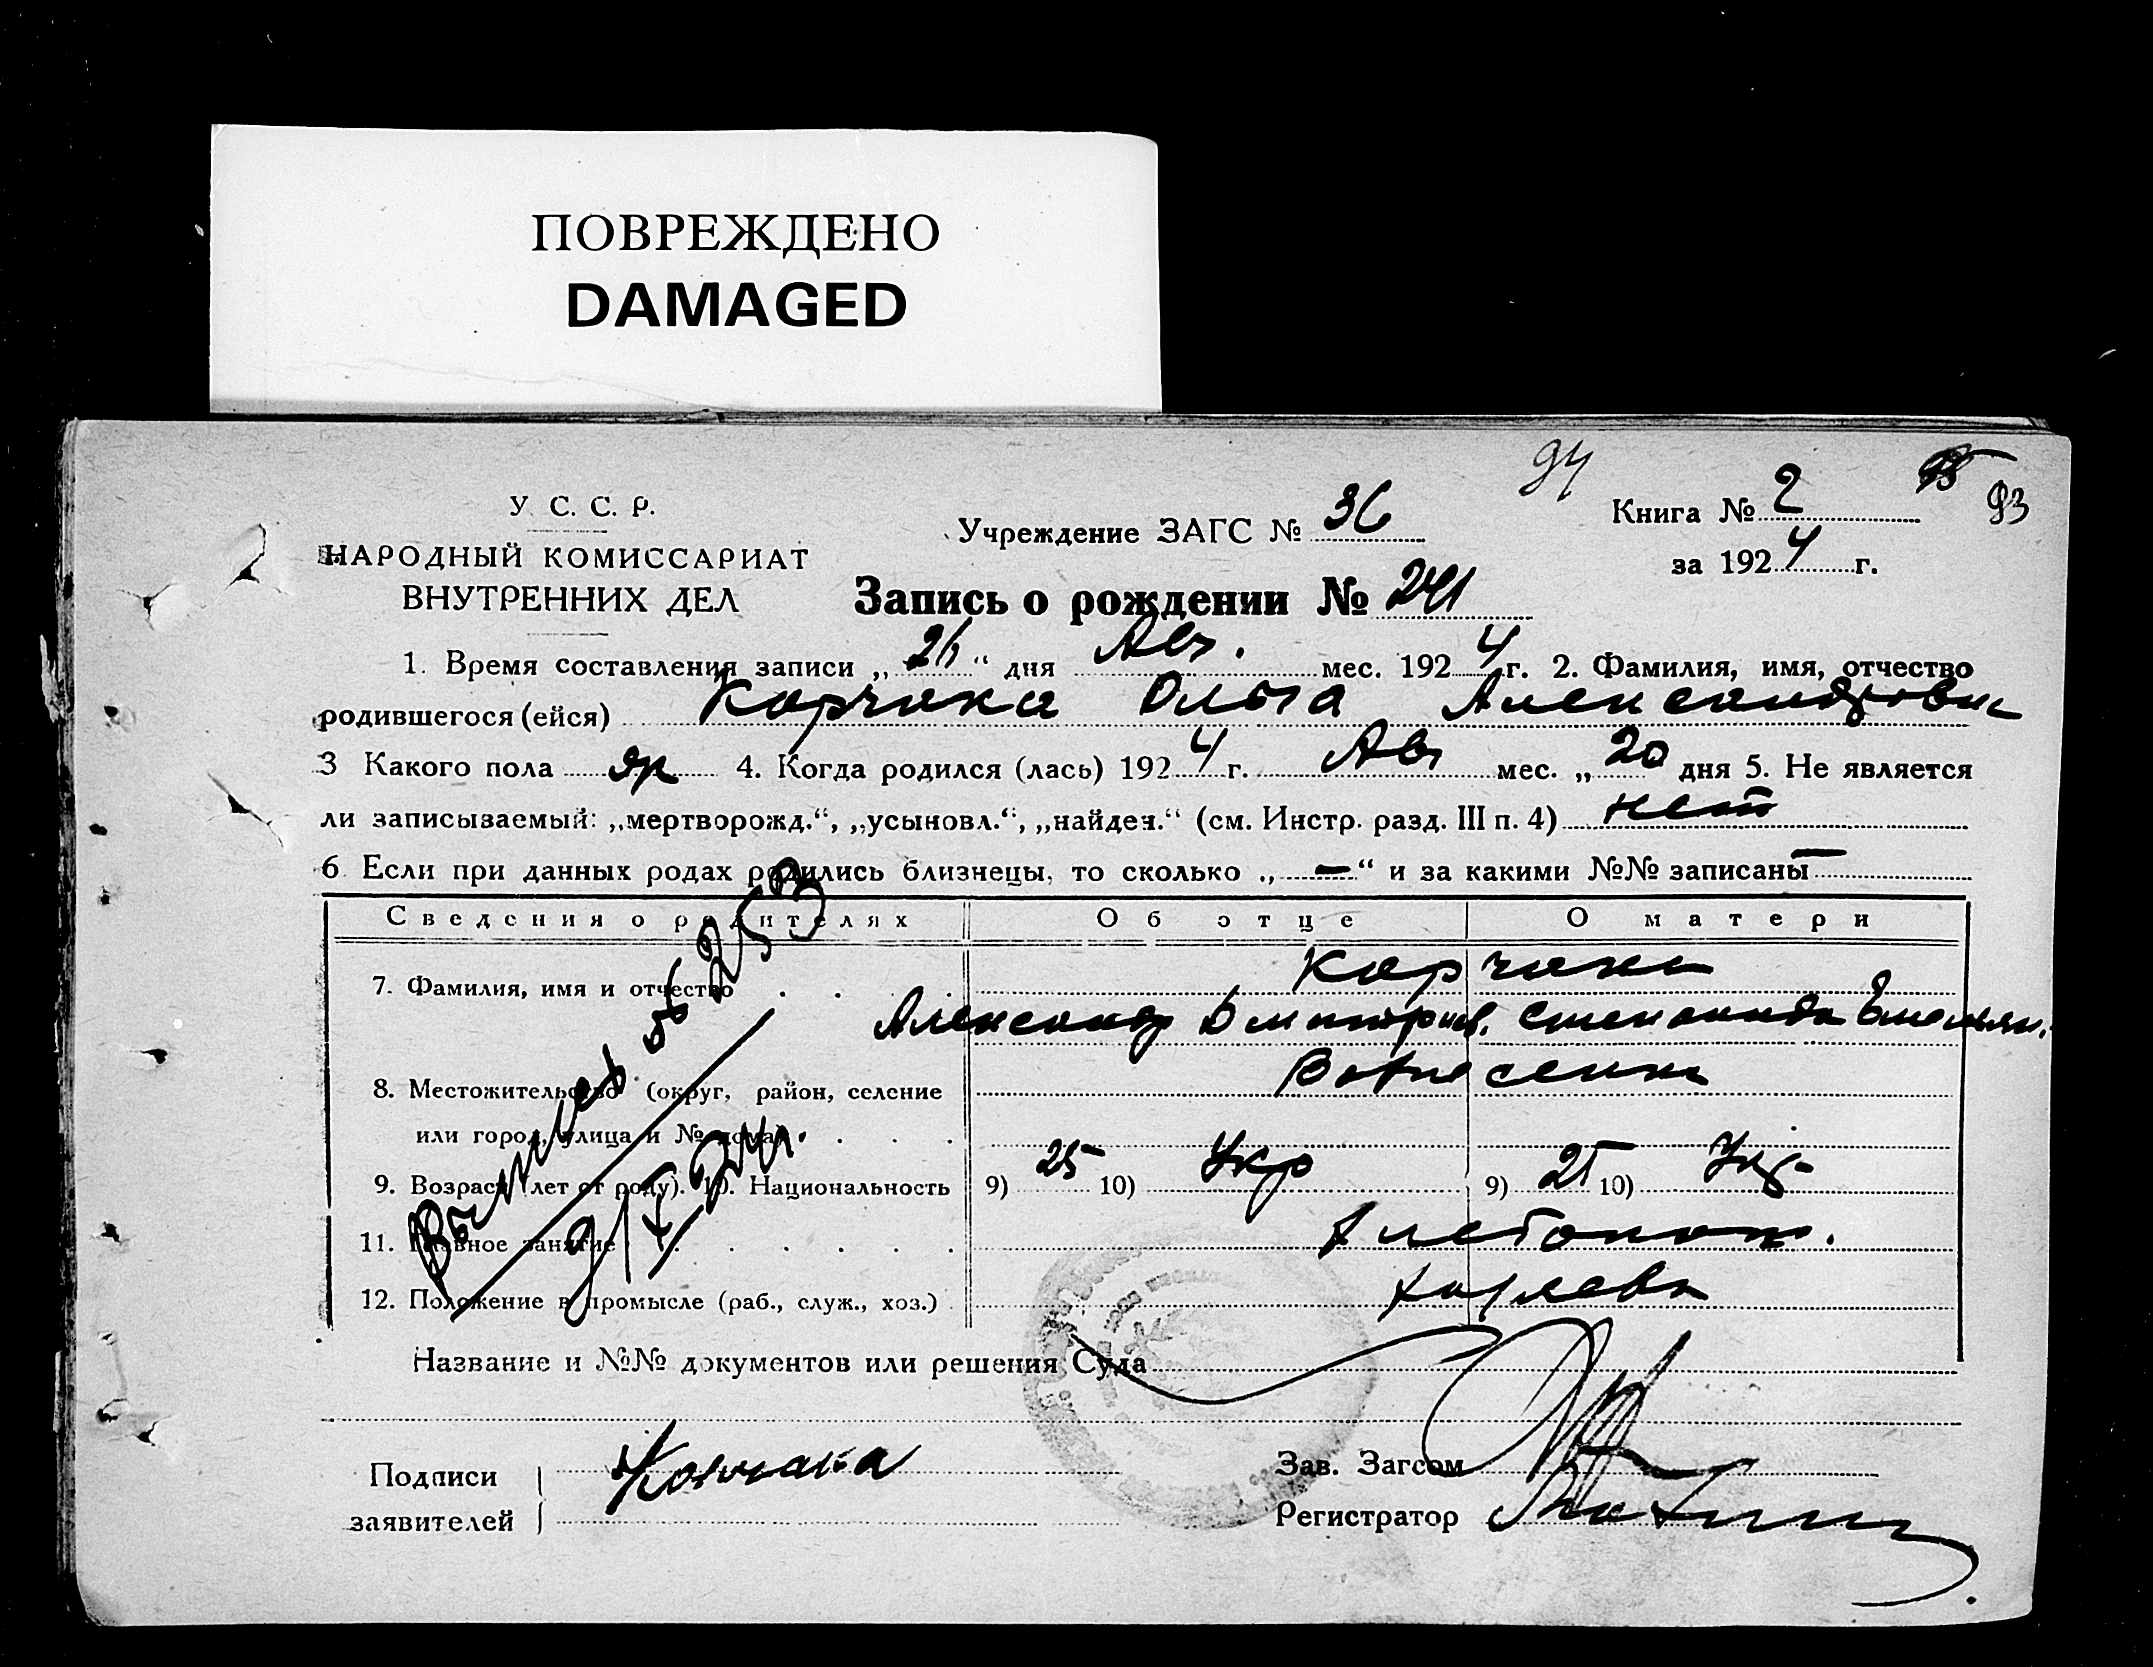 ПОВРЕЖДЕНО
DAMAGED
94
93
У. С. С. Р.
НАРОДНЫЙ КОМИССАРИАТ
ВНУТРЕННИХ ДЕЛ
Учреждение ЗАГС № 36
Книга № 2
за 1924 г.
Запись о рождении № 241
1. Время составления записи „26“ дня Авг. мес. 1924 г. 2. Фамилия, имя, отчество
родившегося (ейся) Корчака Ольга Александровн
3 Какого пола 4. Когда родился (лась) 1924 г. Авг мес. „20 дня 5. Не является
ли записываемый: „мертворожд.“, „усыновл.“, „найден.“ (см. Инстр. разд. III п. 4) нет
6 Если при данных родах родились близнецы, то сколько „—“ и за какими №№ записаны —
Сведения о родителях Об отце О матери
7. Фамилия, имя и отчество Корчака
Александр Дмитриев. Степанида Емельян.
8. Местожительство (округ, район, селение Вознесенка
или город, улица и № дома)
9. Возраст (лет от роду). 10. Национальность 9) 25 10) Укр 9) 25 10) Укр
11. Главное занятие Хлебопаш.
12. Положение в промысле (раб., служ., хоз.) хозяева
253
Название и №№ документов или решения Суда
Подписи
заявителей
Корчака
Зав. Загсом
Регистратор